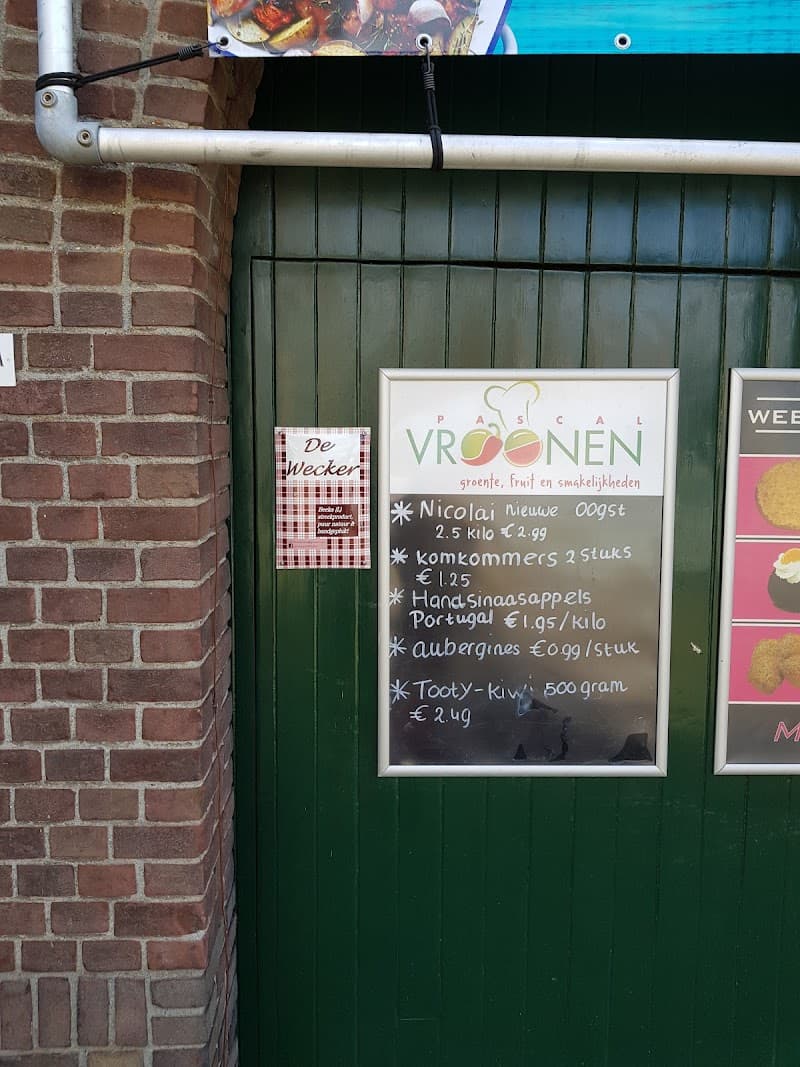 De
Wecker
streekproduct,
puur natuur &
handgeplukt!
PASCAL
VROONEN
groente, fruit en smakelijkheden
* Nicolai nieuwe oogst
2.5 kilo € 2.99
* komkommers 2 stuks
€ 1.25
* Handsinaasappels
Portugal € 1.95/kilo
* aubergines € 0.99/stuk
* Tooty-kiwi 500 gram
€ 2.49
WEE
M